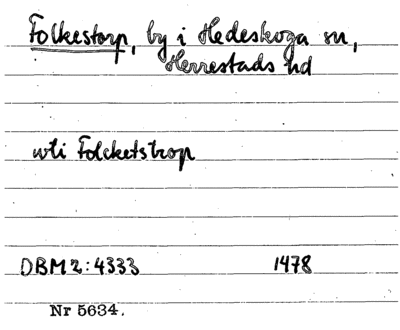 Folkestorp, by i Hedeskoga sn,
Herrestads hd
wti Folcketstrop
DBM 2:4333 1478
Nr 5634.